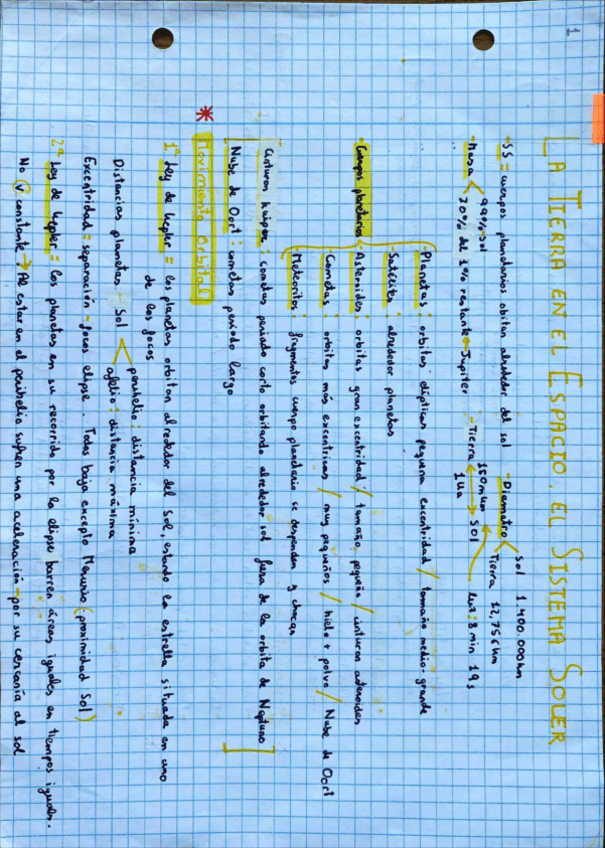 1
LA TIERRA EN EL ESPACIO. EL SISTEMA SOLER
-SS = cuerpos planetarios obitan alrededor del sol
-Diametro < Sol 1.400.000km
Tierra 12,756 km
-Masa < 99% sol
70% del 1% restante → Jupiter
-Tierra ↔ Sol
150mkm
1Ua
luz: 8 min 19 s
-Cuerpos planetarios
-Planetas: orbitas elípticas pequeña excentridad / tamaño medio-grande
-Satelites: alrededor planetas
-Asteroides: orbitas gran excentridad / tamaño pequeño / cinturon asteroides
-Cometas: orbitas más excentricas / muy pequeños / hielo + polvo / Nube de Oort
-Meteoritos: fragmentos cuerpo planetario se desprenden y chocan
Cinturon kuiper: cometas periodo corto orbitando alrededor sol fuera de la orbita de Neptuno
Nube de Oort: cometas periodo largo
* Movimiento Orbital
1ª Ley de Kepler = los planetas orbitan alrededor del Sol, estando la estrella situada en uno
de los focos
Distancias planetas - Sol < perihelio: distancia mínima
afelio: distancia máxima
Excentridad = separación - focos elipse. Todas baja excepto Mercurio (proximidad Sol)
2ª Ley de Kepler = los planetas en su recorrido por la elipse barren áreas iguales en tiempos iguales.
No v constante → Al estar en el perihelio sufren una aceleración - por su cercanía al sol